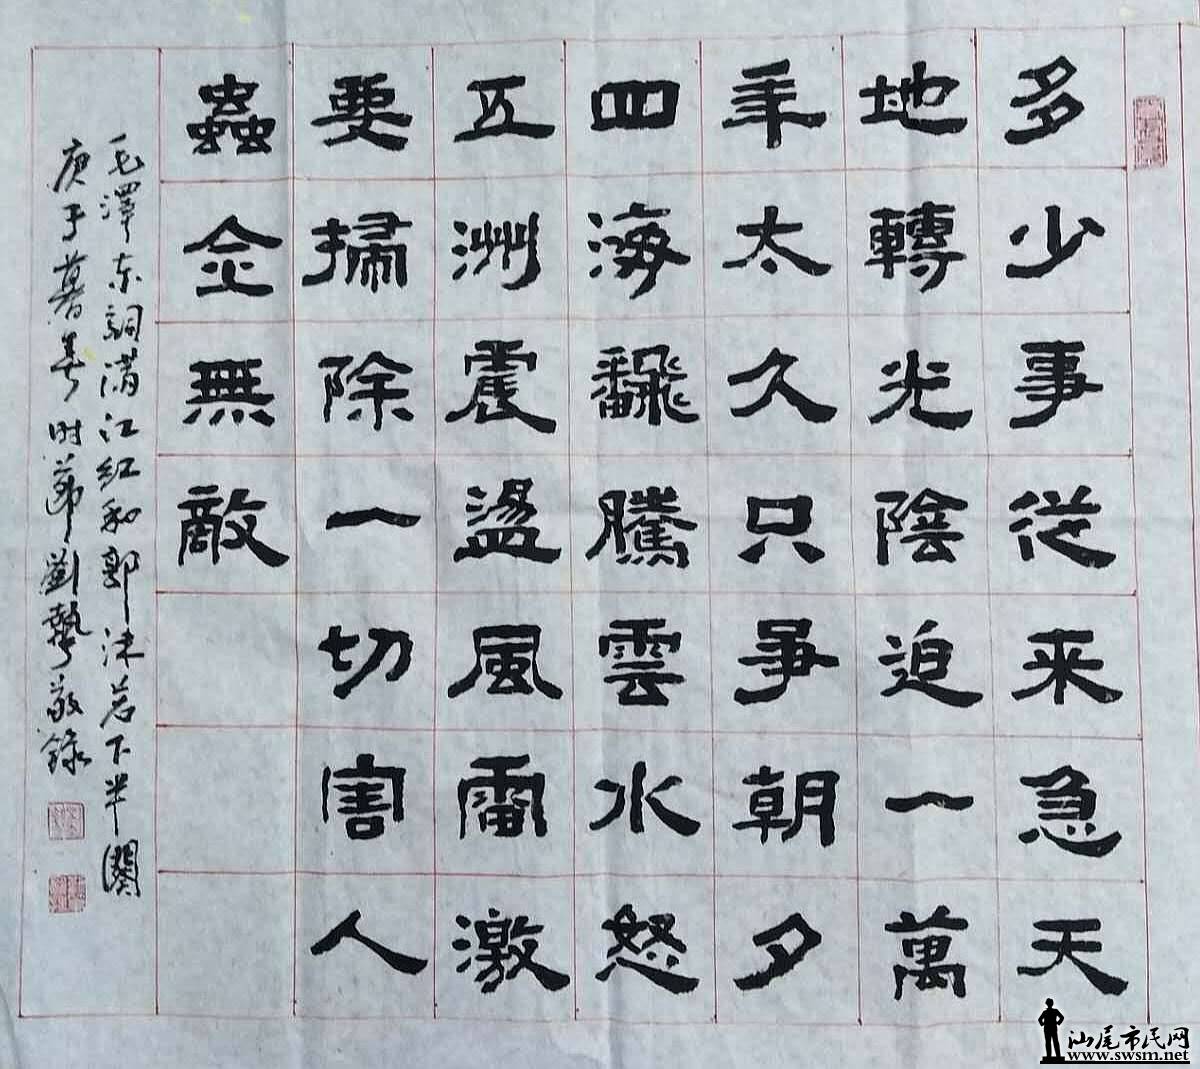 多少事從来急天
地轉光陰迫一萬
年太久只爭朝夕
四海飜騰雲水怒
五洲震盪風雷激
要掃除一切害人
蟲全無敵
毛澤东詞满江红和郭沫若下半闋
庚子暮春时節劉敬錄
汕尾市民网
www.swsm.net